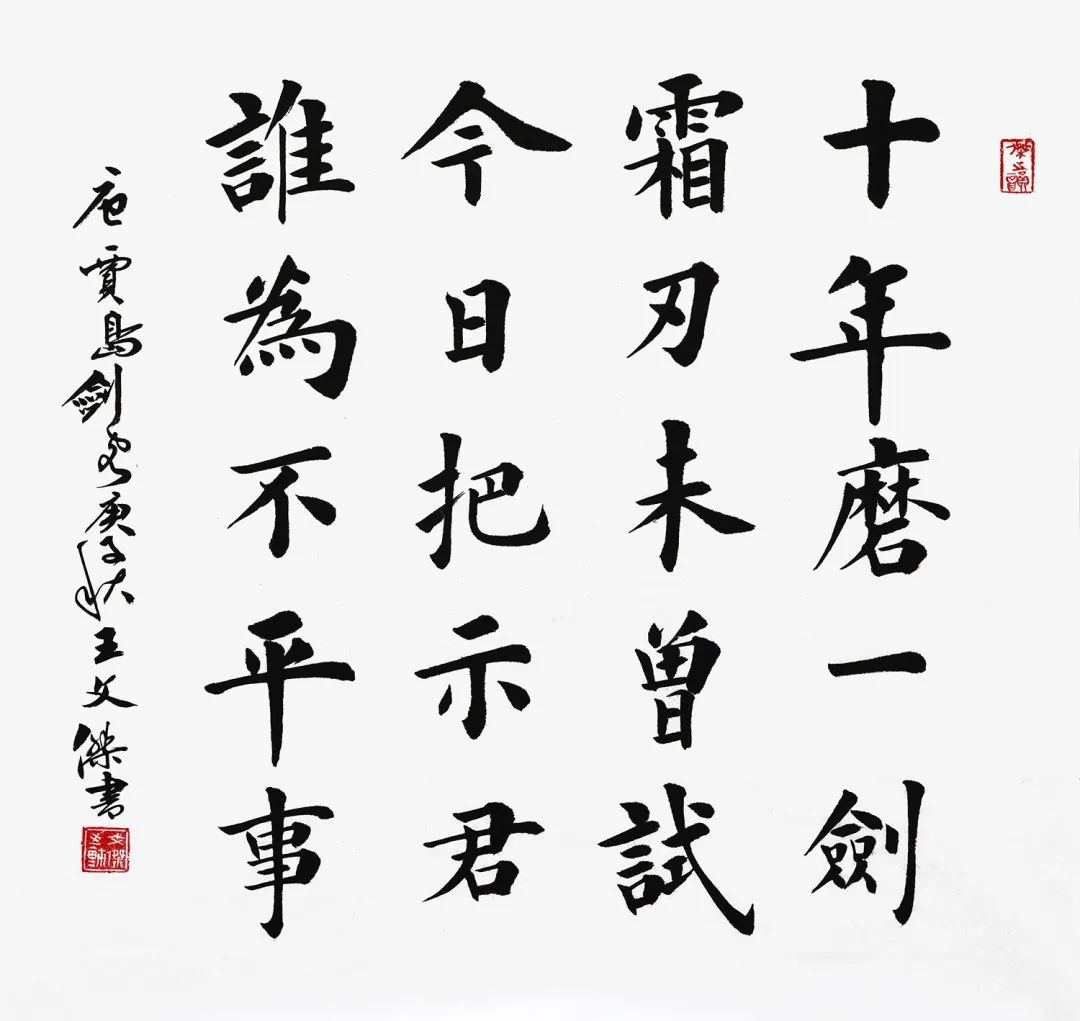 十年磨一劍
霜刃未曾試
今日把示君
誰為不平事
唐賈島劍客庚子秋王文傑書